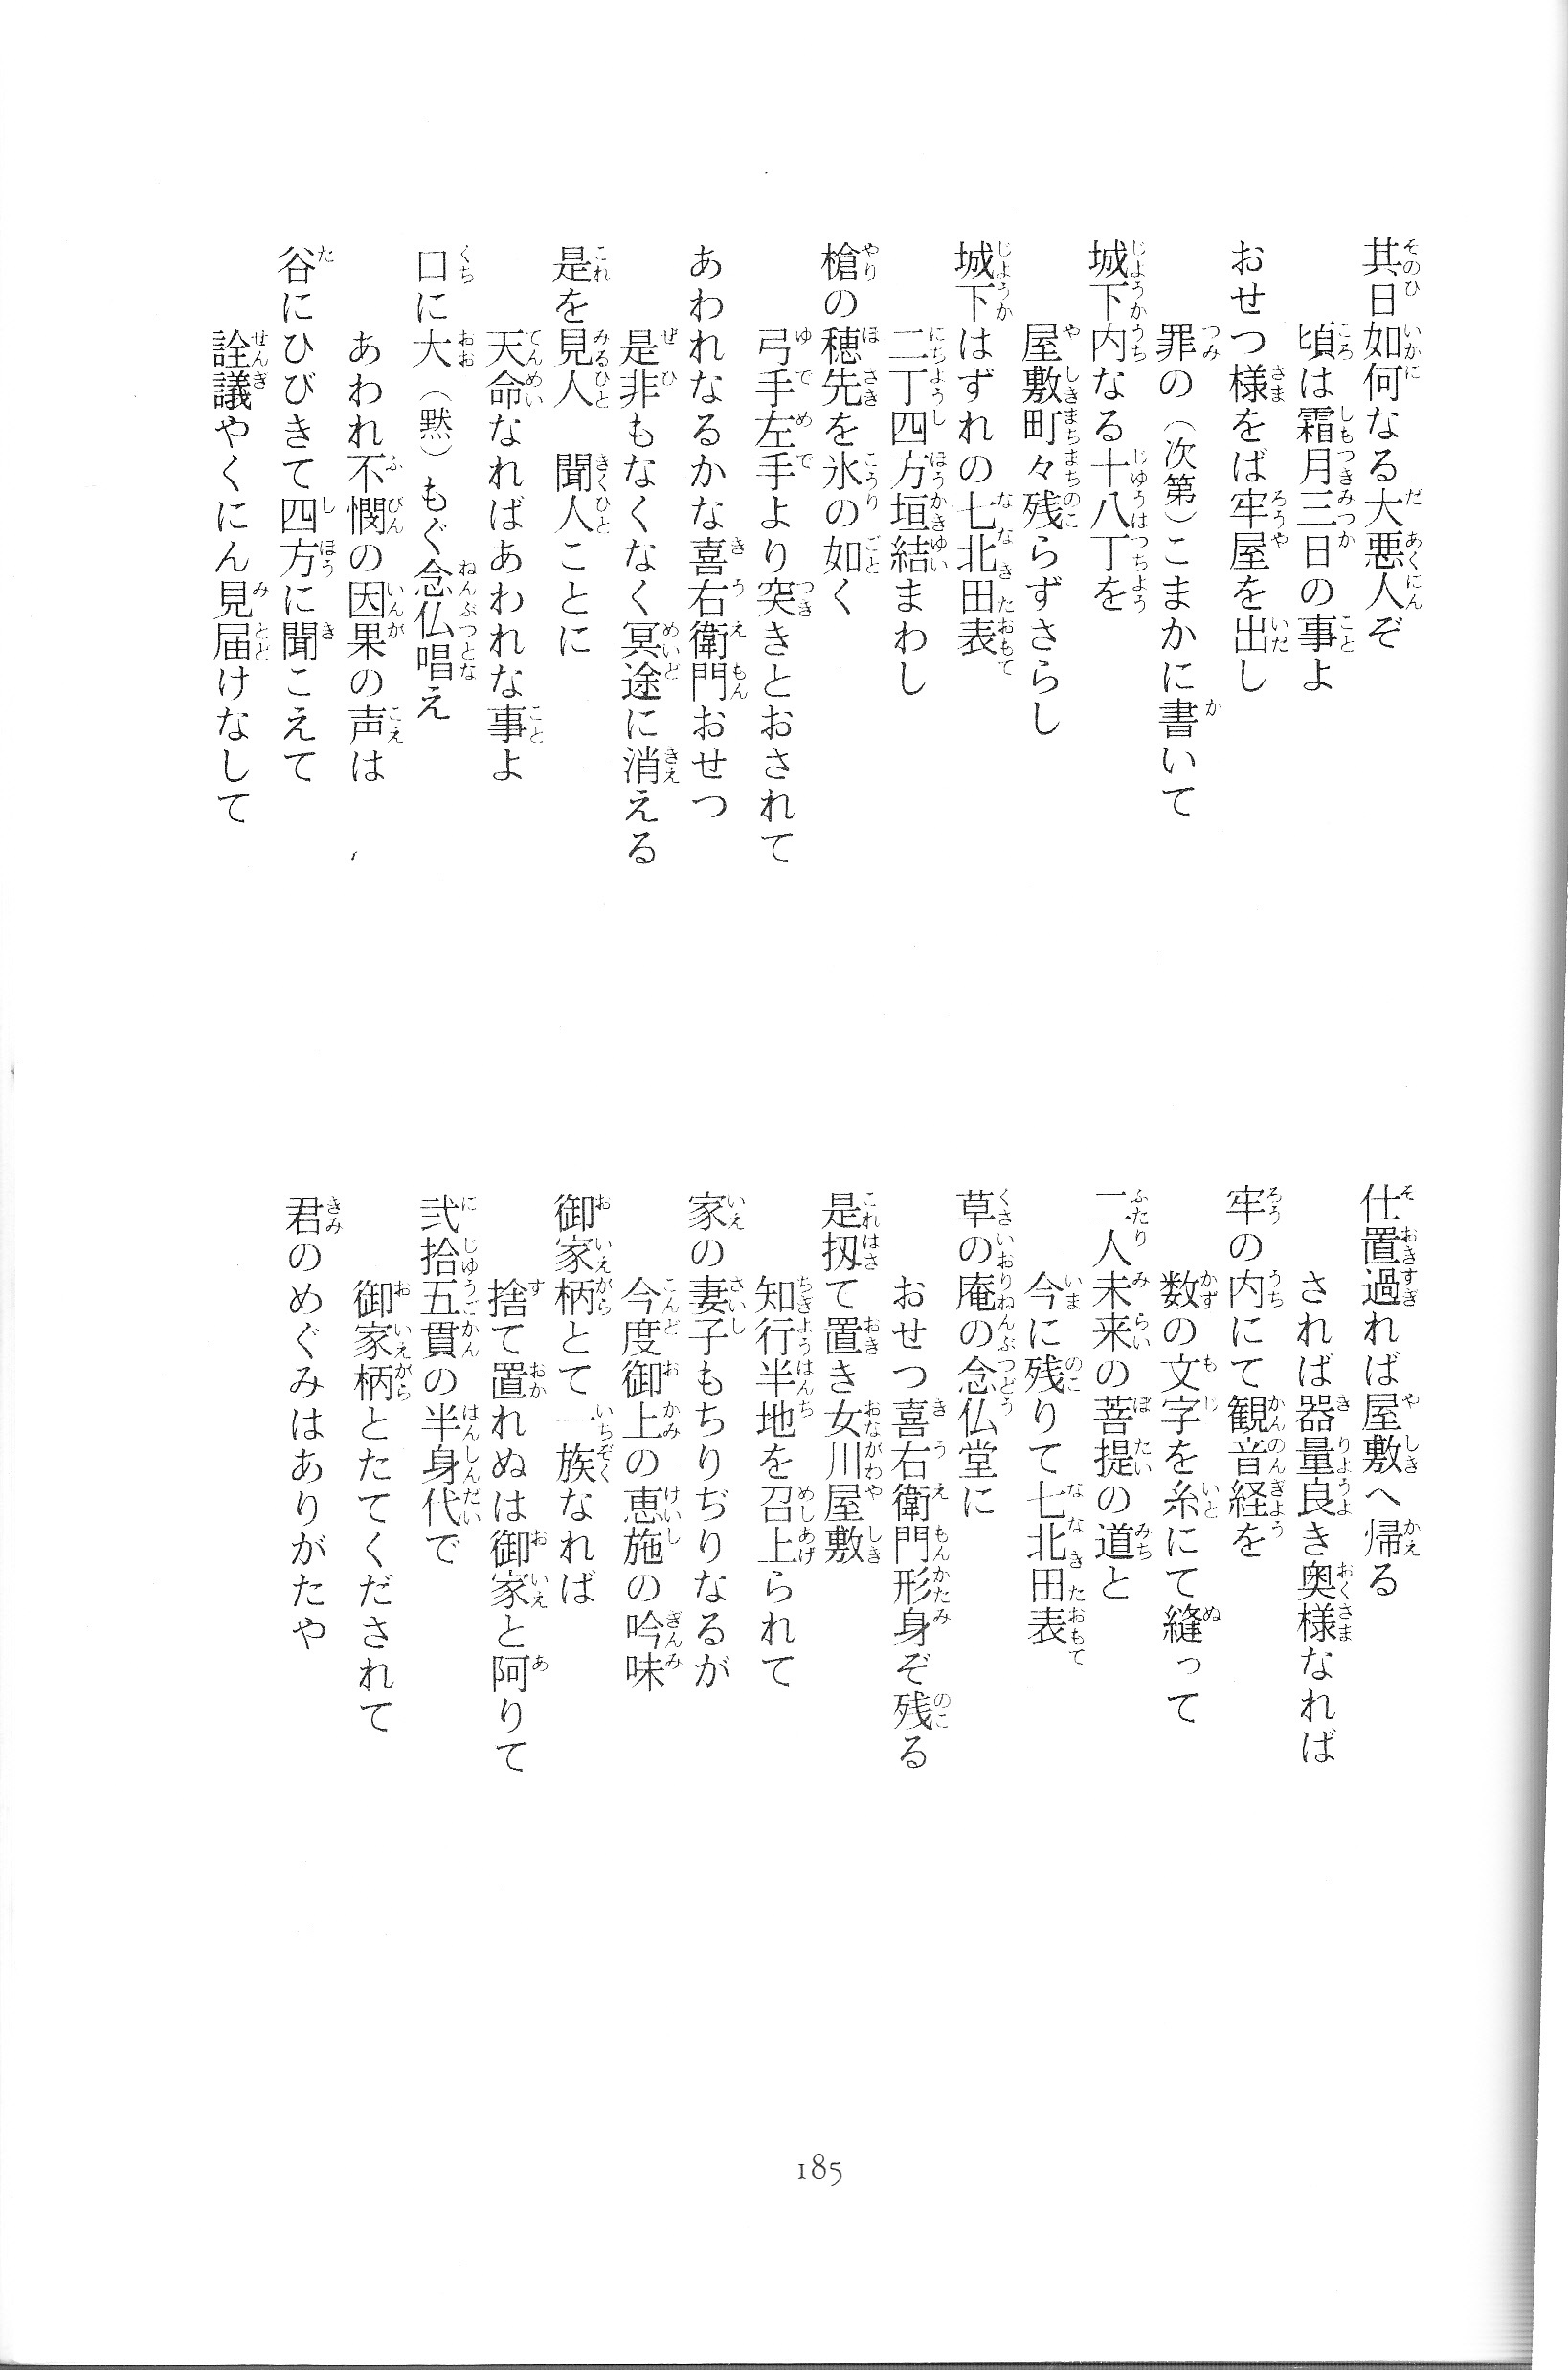 其日如何なる大悪人ぞ
頃は霜月三日の事よ
おせつ様をば牢屋を出し
罪の（次第）こまかに書いて
城下内なる十八丁を
屋敷町々残らずさらし
城下はずれの七北田表
二丁四方垣結まわし
槍の穂先を氷の如く
弓手左手より突きとおされて
あわれなるかな喜右衛門おせつ
是非もなくなく冥途に消える
是を見人　聞人ことに
天命なればあわれな事よ
口に大（黙）もぐ念仏唱え
あわれ不憫の因果の声は
谷にひびきて四方に聞こえて
詮議やくにん見届けなして
仕置過れば屋敷へ帰る
されば器量良き奥様なれば
牢の内にて観音経を
数の文字を糸にて縫って
二人未来の菩提の道と
今に残りて七北田表
草の庵の念仏堂に
おせつ喜右衛門形身ぞ残る
是扨て置き女川屋敷
知行半地を召上られて
家の妻子もちりぢりなるが
今度御上の恵施の吟味
御家柄とて一族なれば
捨て置れぬは御家と阿りて
弐拾五貫の半身代で
御家柄とたてくだされて
君のめぐみはありがたや
185